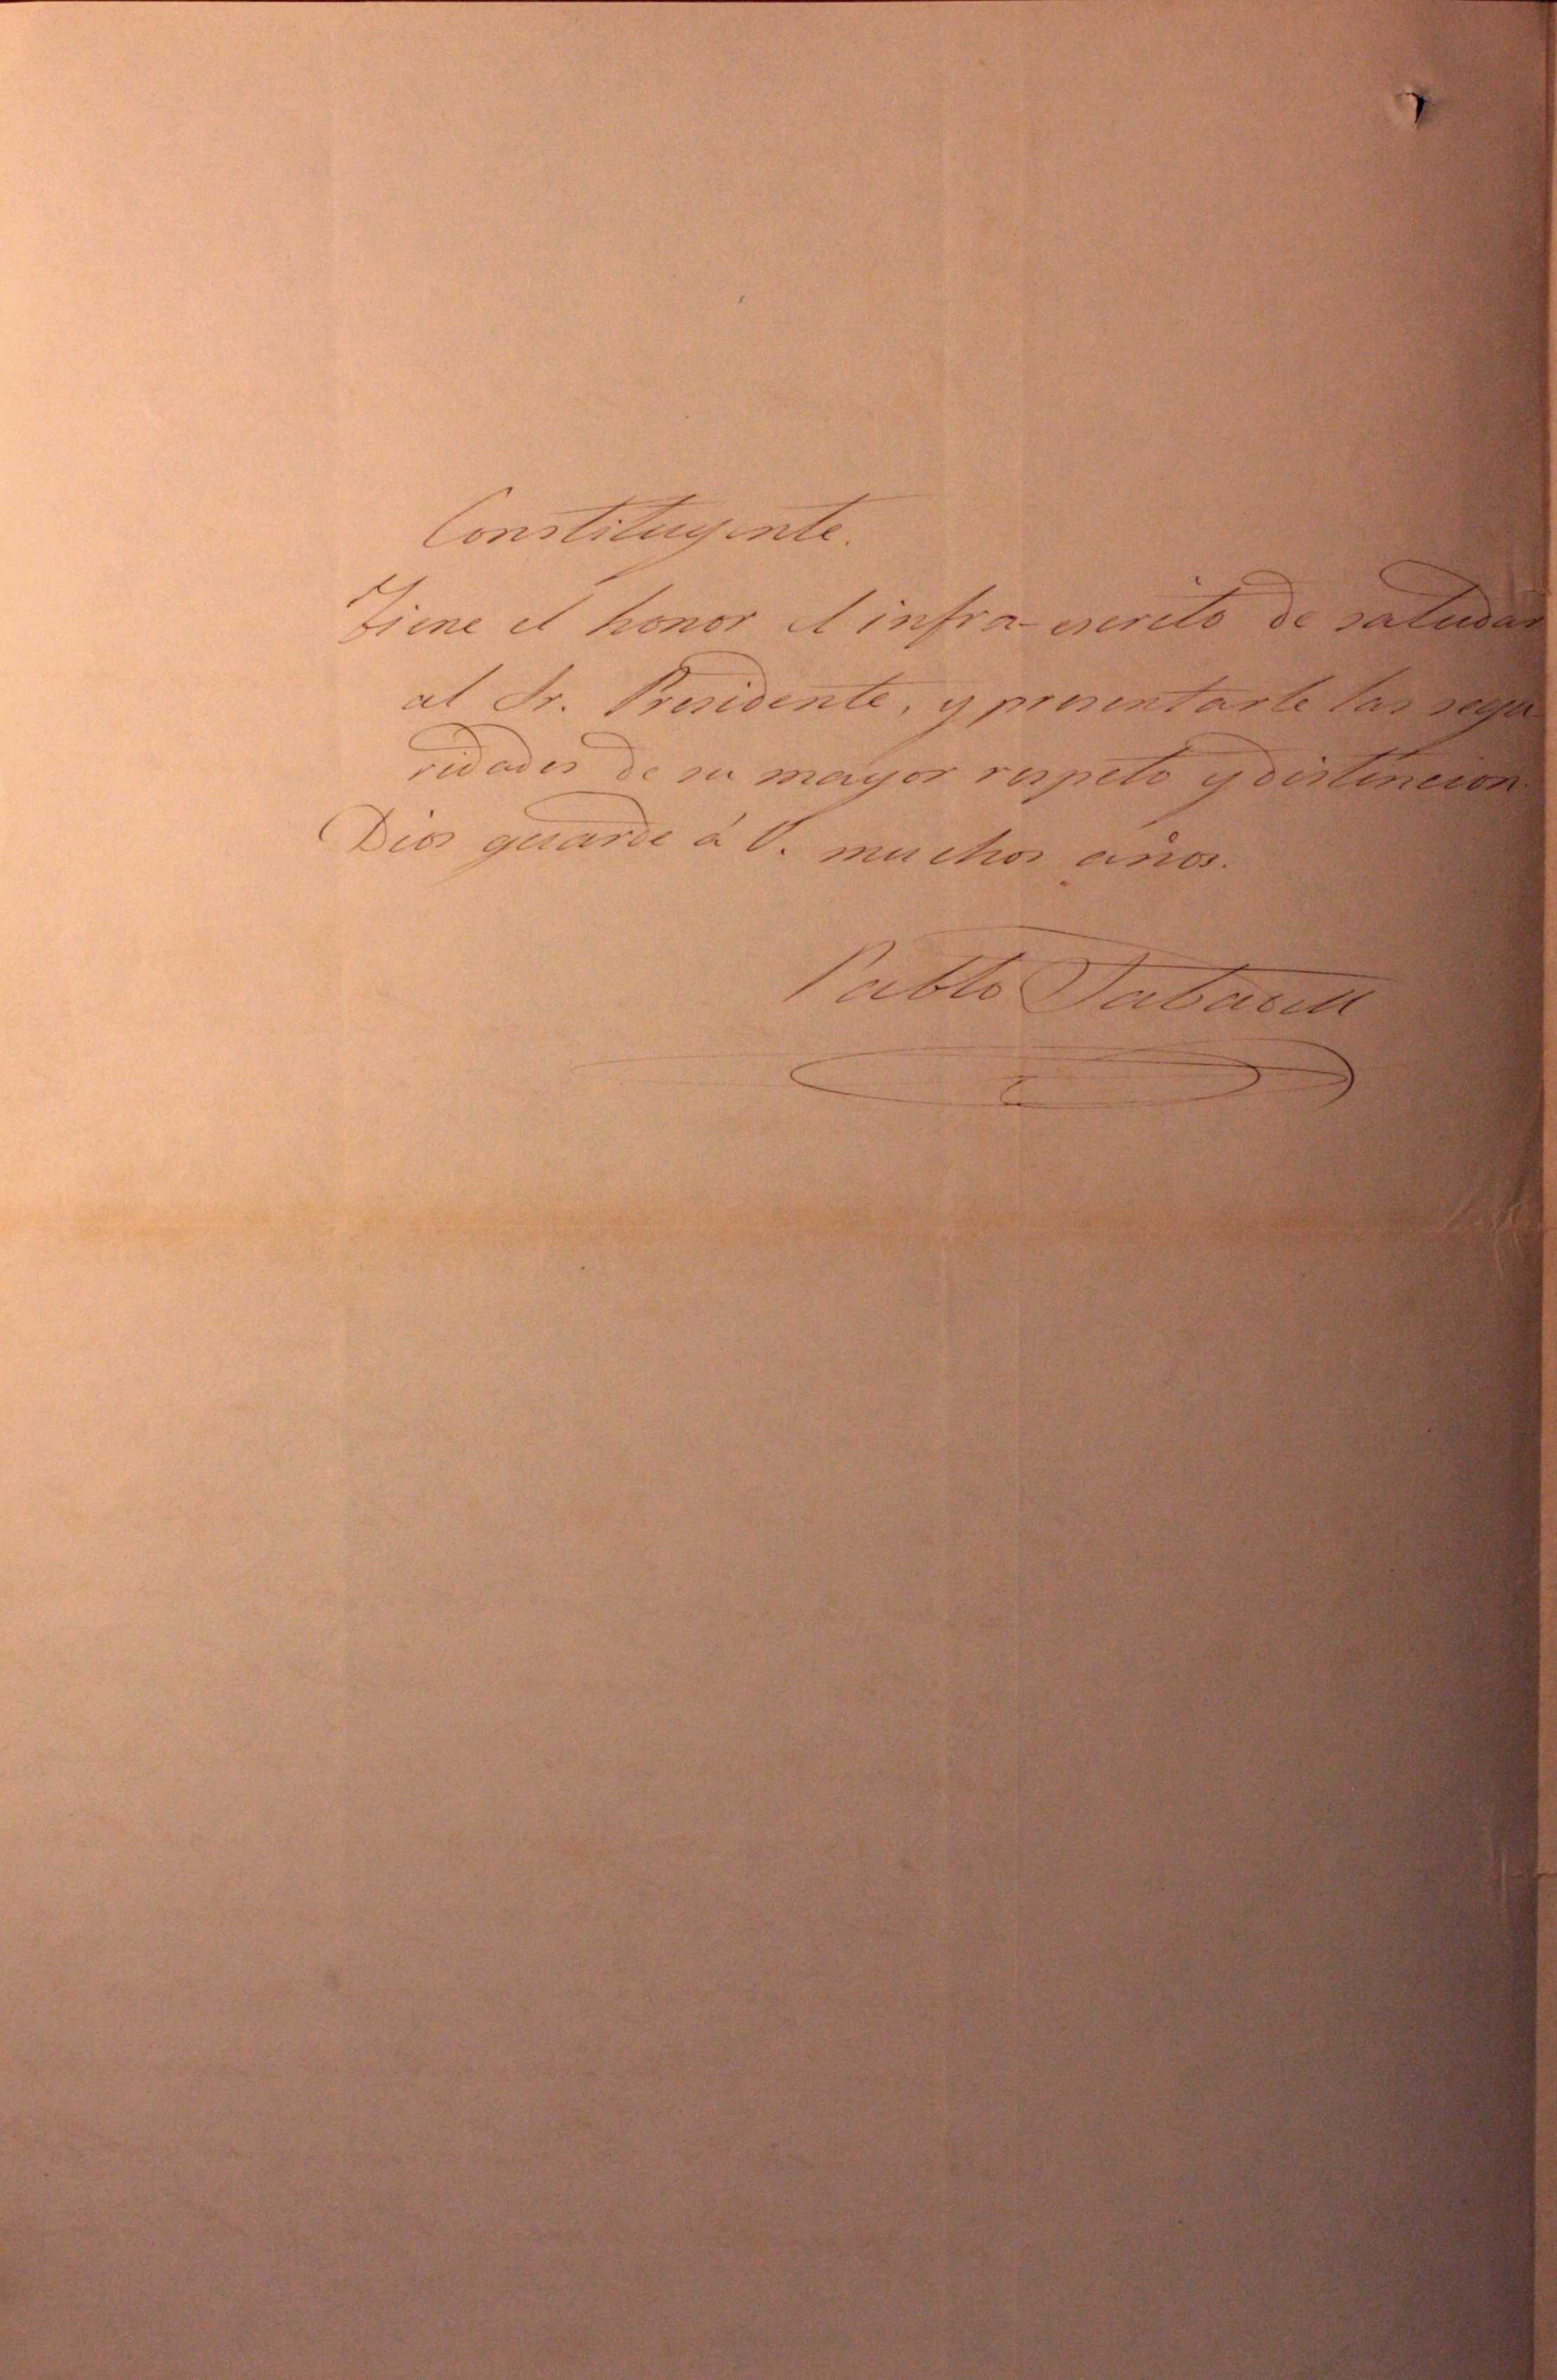 Constituyente.
Tiene el honor el infra-escrito de saludar
al Sr. Presidente, y presentarle las segu-
ridades de su mayor respeto y distincion.
Dios guarde á V. muchos años.
Pablo